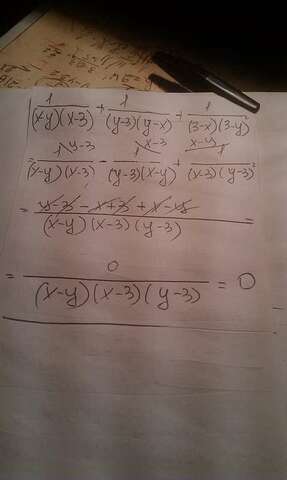 1/((x-y)(x-3)) + 1/((y-3)(y-x)) + 1/((3-x)(3-y))
= 1\y-3/((x-y)(x-3)) - 1\x-3/((y-3)(x-y)) + x-y\1/((x-3)(y-3))
= (y-3-x+3+x-y)/((x-y)(x-3)(y-3)) =
= 0/((x-y)(x-3)(y-3)) = 0